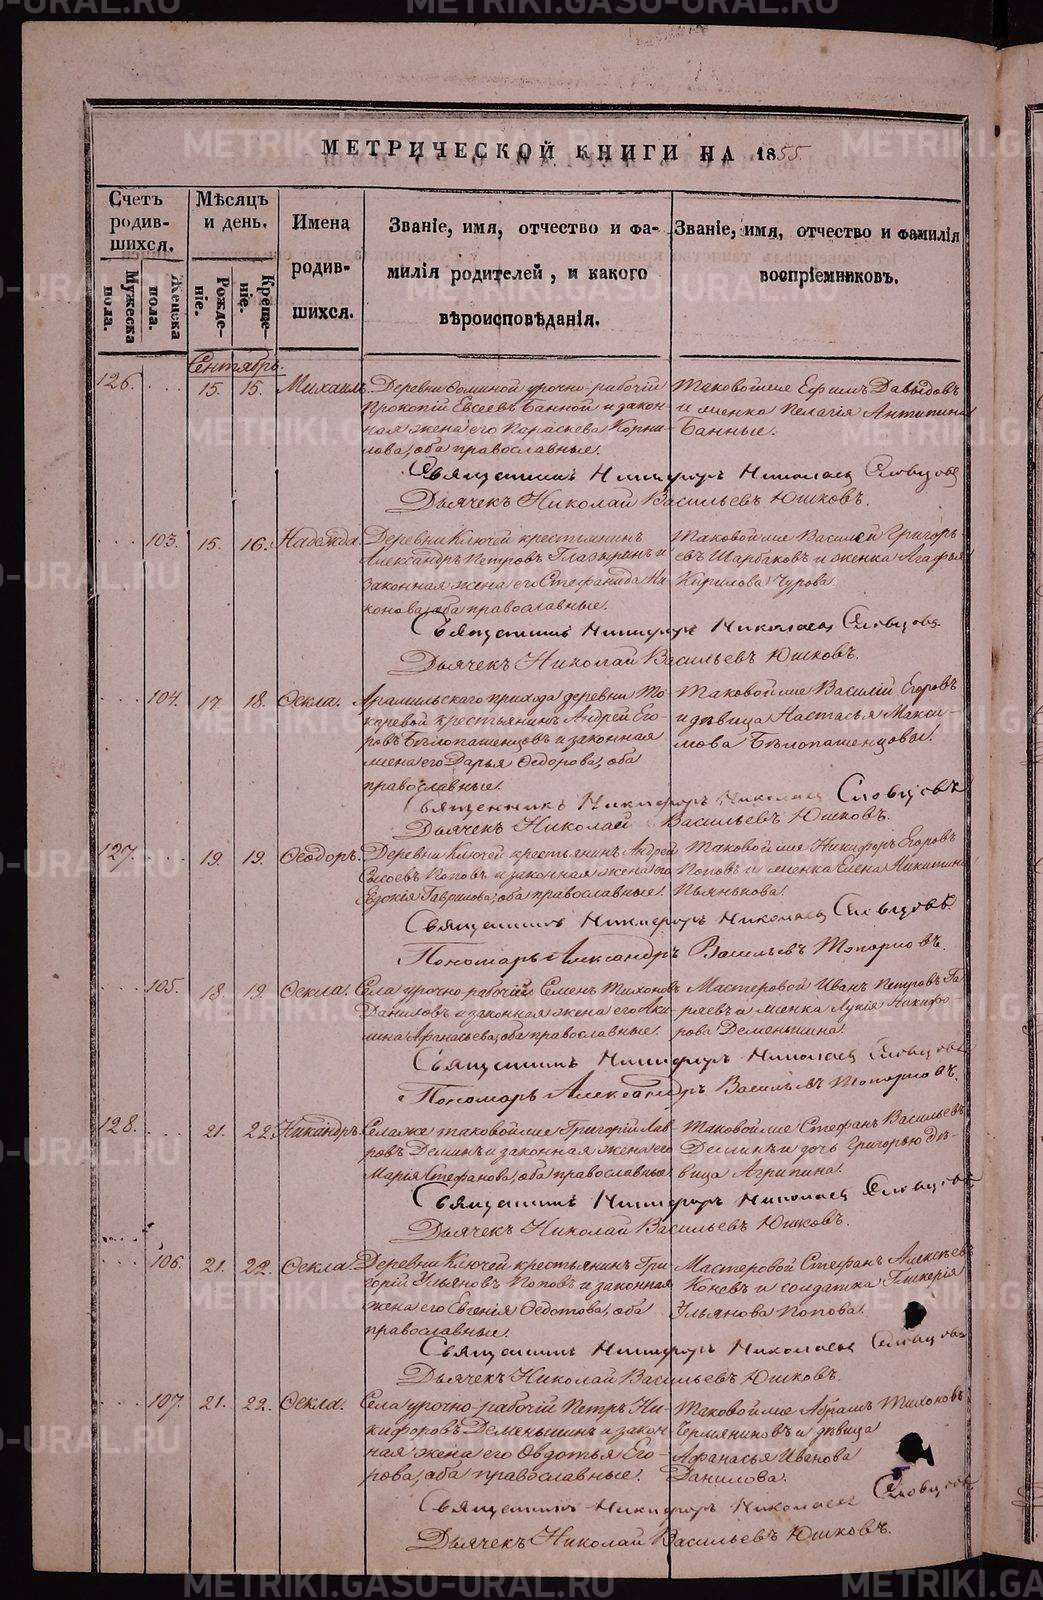 МЕТРИЧЕСКОЙ КНИГИ НА 1855.
Счетъ родив-шихся.
Мужеска пола.
Женска пола.
Мѣсяцъ и день.
Рожде-ніе.
Креще-ніе.
Имена родив-шихся.
Званіе, имя, отчество и фа-
милія родителей, и какого
вѣроисповѣданія.
Званіе, имя, отчество и фамилія
воспріемниковъ.
Сентябрь.
126. 15. 15. Михаилъ
Деревни Фоминой урочно-рабочій
Прокопій Евсеевъ Банной и закон-
ная жена его Параскева Корни-
лова, оба православные.
Таковой же Ефимъ Давыдовъ
и женка Пелагія Антипина
Банные.
Священникъ Никифоръ Николаевъ Словцовъ
Дьячекъ Николай Васильевъ Юшковъ.
103. 15. 16. Надежда
Деревни Ключей крестьянинъ
Александръ Петровъ Глазыринъ и
законная жена его Стефанида Ни-
конова, оба православные.
Таковой же Василей Григорь
евъ Щарбаковъ и женка Агафья
Кирилова Чурова.
Священникъ Никифоръ Николаевъ Словцовъ
Дьячекъ Николай Васильевъ Юшковъ.
104. 17. 18. Ѳекла.
Арамильскаго прихода деревни
крестьянинъ Андрей Его-
ровъ Бѣлопашенцовъ и законная
жена его Дарья Ѳедорова, оба
православные.
Таковой же Василій Егоровъ
и дѣвица Настасья Макси-
мова Бѣлопашенцовы.
Священникъ Никифоръ Николаевъ Словцовъ
Дьячекъ Николай Васильевъ Юшковъ.
127. 19. 19. Ѳеодоръ.
Деревни Ключей крестьянинъ Андрей
Сысоевъ Поповъ и законная жена его
Евдокія Гаврилова, оба православные.
Таковой же Никифоръ Егоровъ
Поповъ и женка Елена Никитина
Пьянькова.
Священникъ Никифоръ Николаевъ Словцовъ
Пономарь Александръ Васильевъ Топорковъ.
105. 18. 19. Ѳекла.
Села урочно-рабочій Семенъ Тихоновъ
Даниловъ и законная жена его Аки-
лина Афанасьева, оба православные.
Мастеровой Иванъ Петровъ Га-
ряевъ и женка Лукія Никифо
рова Деменьшина.
Священникъ Никифоръ Николаевъ Словцовъ
Пономарь Александръ Васильевъ Топорковъ.
128. 21. 22. Никандръ.
Села же таковой же Григорій Лав-
ровъ Деминъ и законная жена его
Марія Стефанова, оба православные
Таковой же Стефанъ Васильевъ
Деминъ и дочь Григорью дѣ-
вица Агрипина.
Священникъ Никифоръ Николаевъ Словцовъ
Дьячекъ Николай Васильевъ Юшковъ.
106. 21. 22. Ѳекла.
Деревни Ключей крестьянинъ Гри-
горій Ульяновъ Поповъ и законная
жена его Евгенія Ѳедотова, оба
православные.
Мастеровой Стефанъ Алексѣевъ
Коневъ и солдатка Гликерія
Ульянова Попова.
Священникъ Никифоръ Николаевъ Словцовъ
Дьячекъ Николай Васильевъ Юшковъ.
107. 21. 22. Ѳекла.
Села урочно-рабочій Петръ Ни-
кифоровъ Деменьшинъ и закон
ная жена его Овдотья Его-
рова, оба православные.
Таковой же Абрамъ Тихоновъ
Чермяниновъ и дѣвица
Афанасья Иванова
Данилова.
Священникъ Никифоръ Николаевъ Словцовъ
Дьячекъ Николай Васильевъ Юшковъ.
METRIKI.GASO-URAL.RU